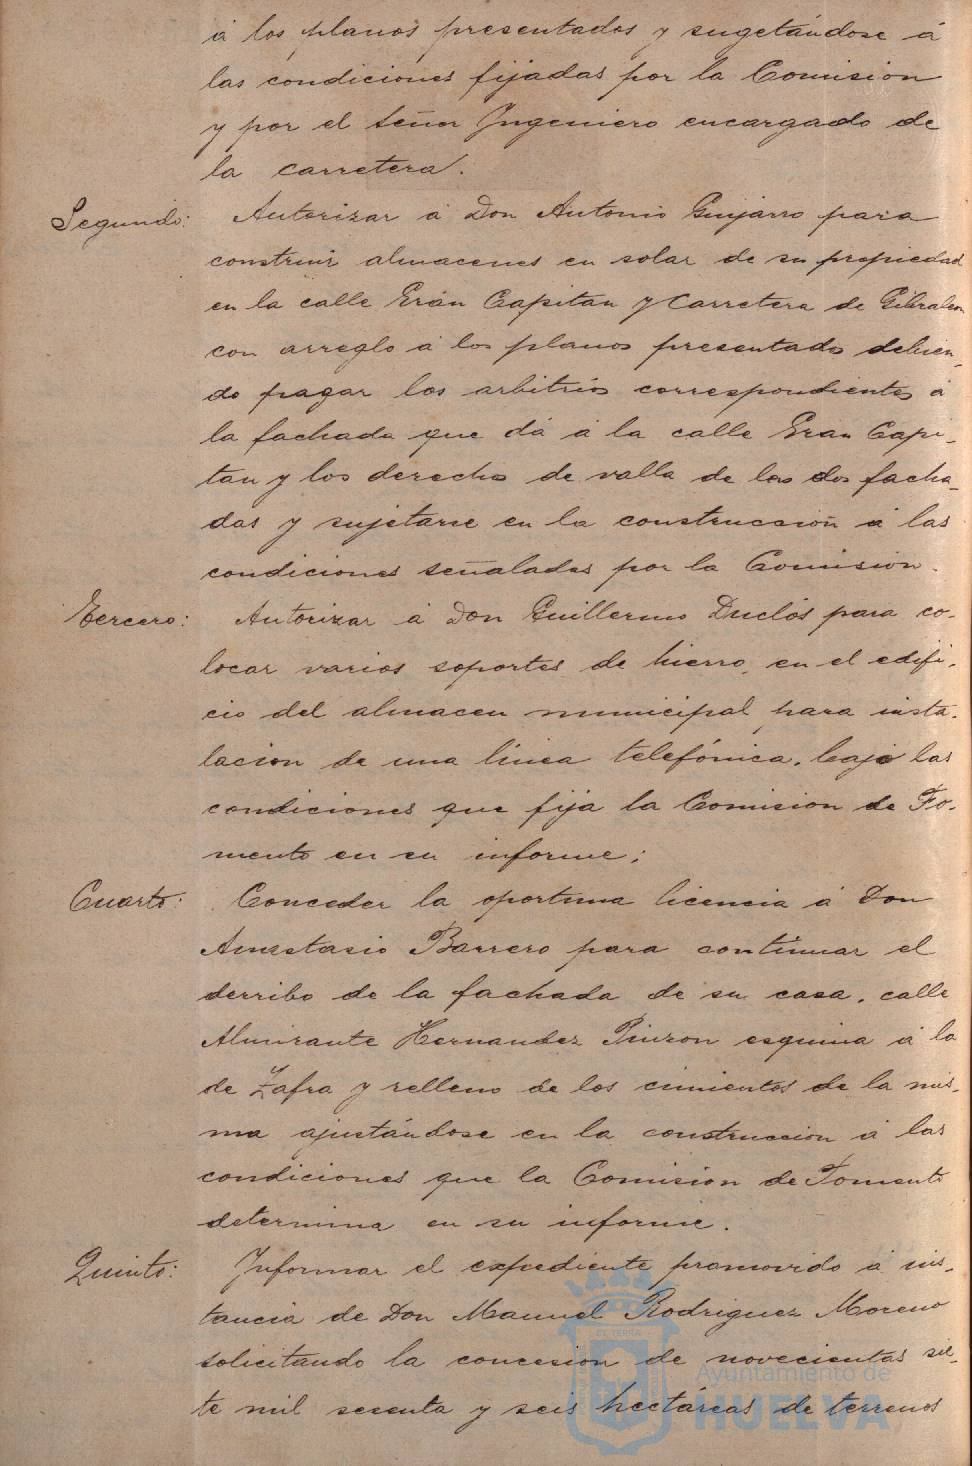 á los planos presentados y sugetándose á
las condiciones fijadas por la Comisión
y por el señor Ingeniero encargado de
la carretera.
Segundo: Autorizar á Don Antonio Guijarro para
construir almacenes en solar de su propiedad
en la calle Gran Capitan y Carretera de Gibraleon
con arreglo á los planos presentados debien-
do pagar los arbitrios correspondientes á
la fachada que dá á la calle Gran Capi-
tan y los derechos de valla de las dos facha-
das y sujetarse en la construcción á las
condiciones señaladas por la Comisión.
Tercero: Autorizar á Don Guillermo Duclós para co-
locar varios soportes de hierro, en el edifi-
cio del almacen municipal para insta-
lacion de una línea telefónica, bajo las
condiciones que fija la Comision de Fo-
mento en su informe;
Cuarto: Conceder la oportuna licencia á Don
Anastasio Barrero para continuar el
derribo de la fachada de su casa, calle
Almirante Hernandez Pinzon esquina á la
de Zafra y relleno de los cimientos de la mis-
ma ajustándose en la construccion á las
condiciones que la Comision de Fomento
determina en su informe.
Quinto: Informar el expediente promovido á ins-
tancia de Don Manuel Rodriguez Moreno
solicitando la concesion de novecientas sie-
te mil sesenta y seis hectáreas de terrenos
Ayuntamiento de
HUELVA